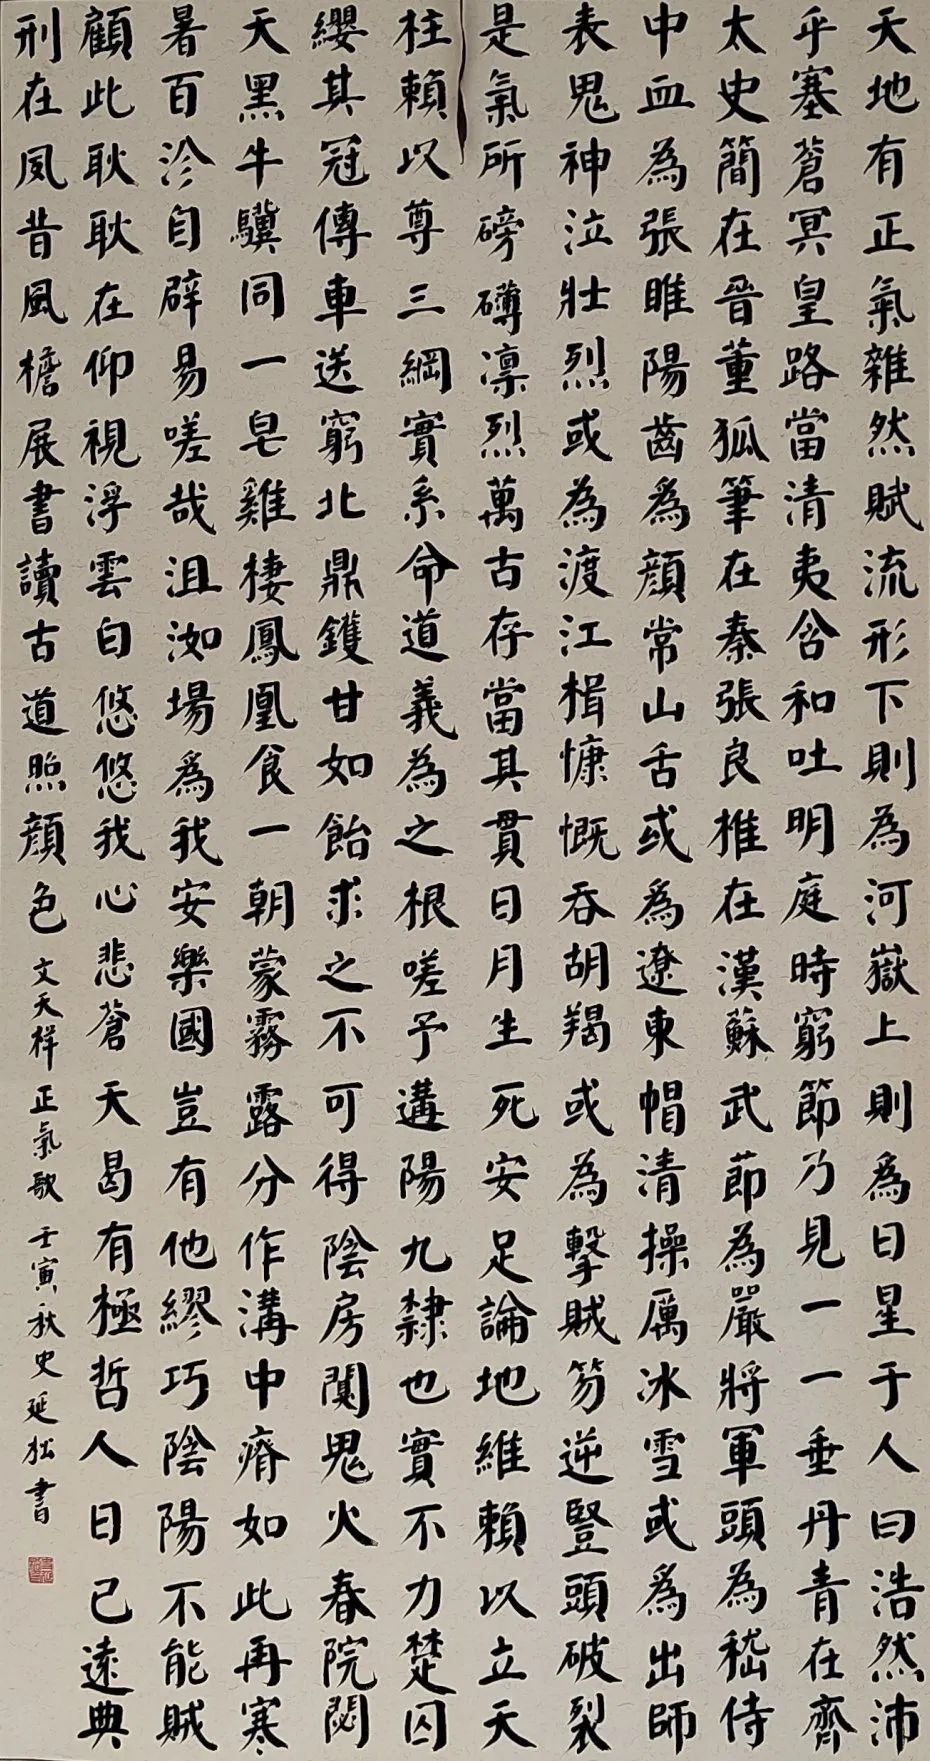 天地有正氣雜然賦流形下則為河嶽上則爲日星于人曰浩然沛
乎塞蒼冥皇路當清夷含和吐明庭時窮節乃見一一垂丹青在齊
太史簡在晉董狐筆在秦張良椎在漢蘇武節為嚴將軍頭為嵇侍
中血為張睢陽齒爲顏常山舌或爲遼東帽清操厲冰雪或爲出師
表鬼神泣壯烈或為渡江楫慷慨吞胡羯或為擊賊笏逆豎頭破裂
是氣所磅礴凛烈萬古存當其貫日月生死安足論地維賴以立天
柱賴以尊三綱實系命道義為之根嗟予遘陽九隸也實不力楚囚
纓其冠傳車送窮北鼎鑊甘如飴求之不可得陰房闃鬼火春院閟
天黑牛驥同一皂雞棲鳳凰食一朝蒙霧露分作溝中瘠如此再寒
暑百沴自辟易嗟哉沮洳場爲我安樂國豈有他繆巧陰陽不能賊
顧此耿耿在仰視浮雲白悠悠我心悲蒼天曷有極哲人日已遠典
刑在夙昔風檐展書讀古道照顏色 文天祥正氣歌 壬寅秋史延書